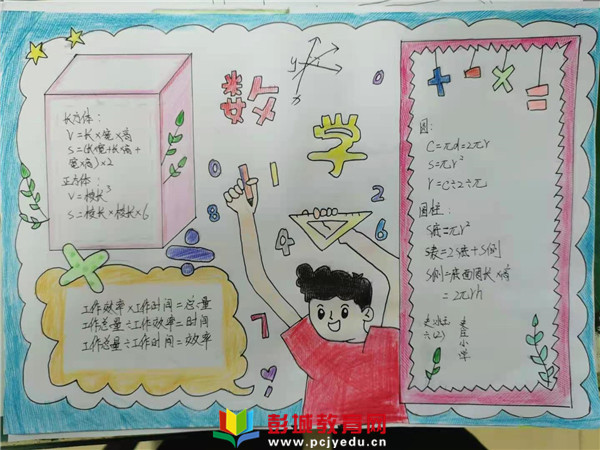 数学
y
x
0
1
2
8
0
4
6
7
长方体：
V=长×宽×高
S=(长宽+长×高+
宽×高)×2
正方体：
V=棱长³
S=棱长×棱长×6
工作效率×工作时间=总量
工作总量÷工作效率=时间
工作总量÷工作时间=效率
圆：
C=πd=2πr
S=πr²
r=C÷2÷π
圆柱：
S底=πr²
S表=2S底+S侧
S侧=底面周长×高
=2πrh
六(2)
小学
彭城教育网
www.pcjyedu.cn